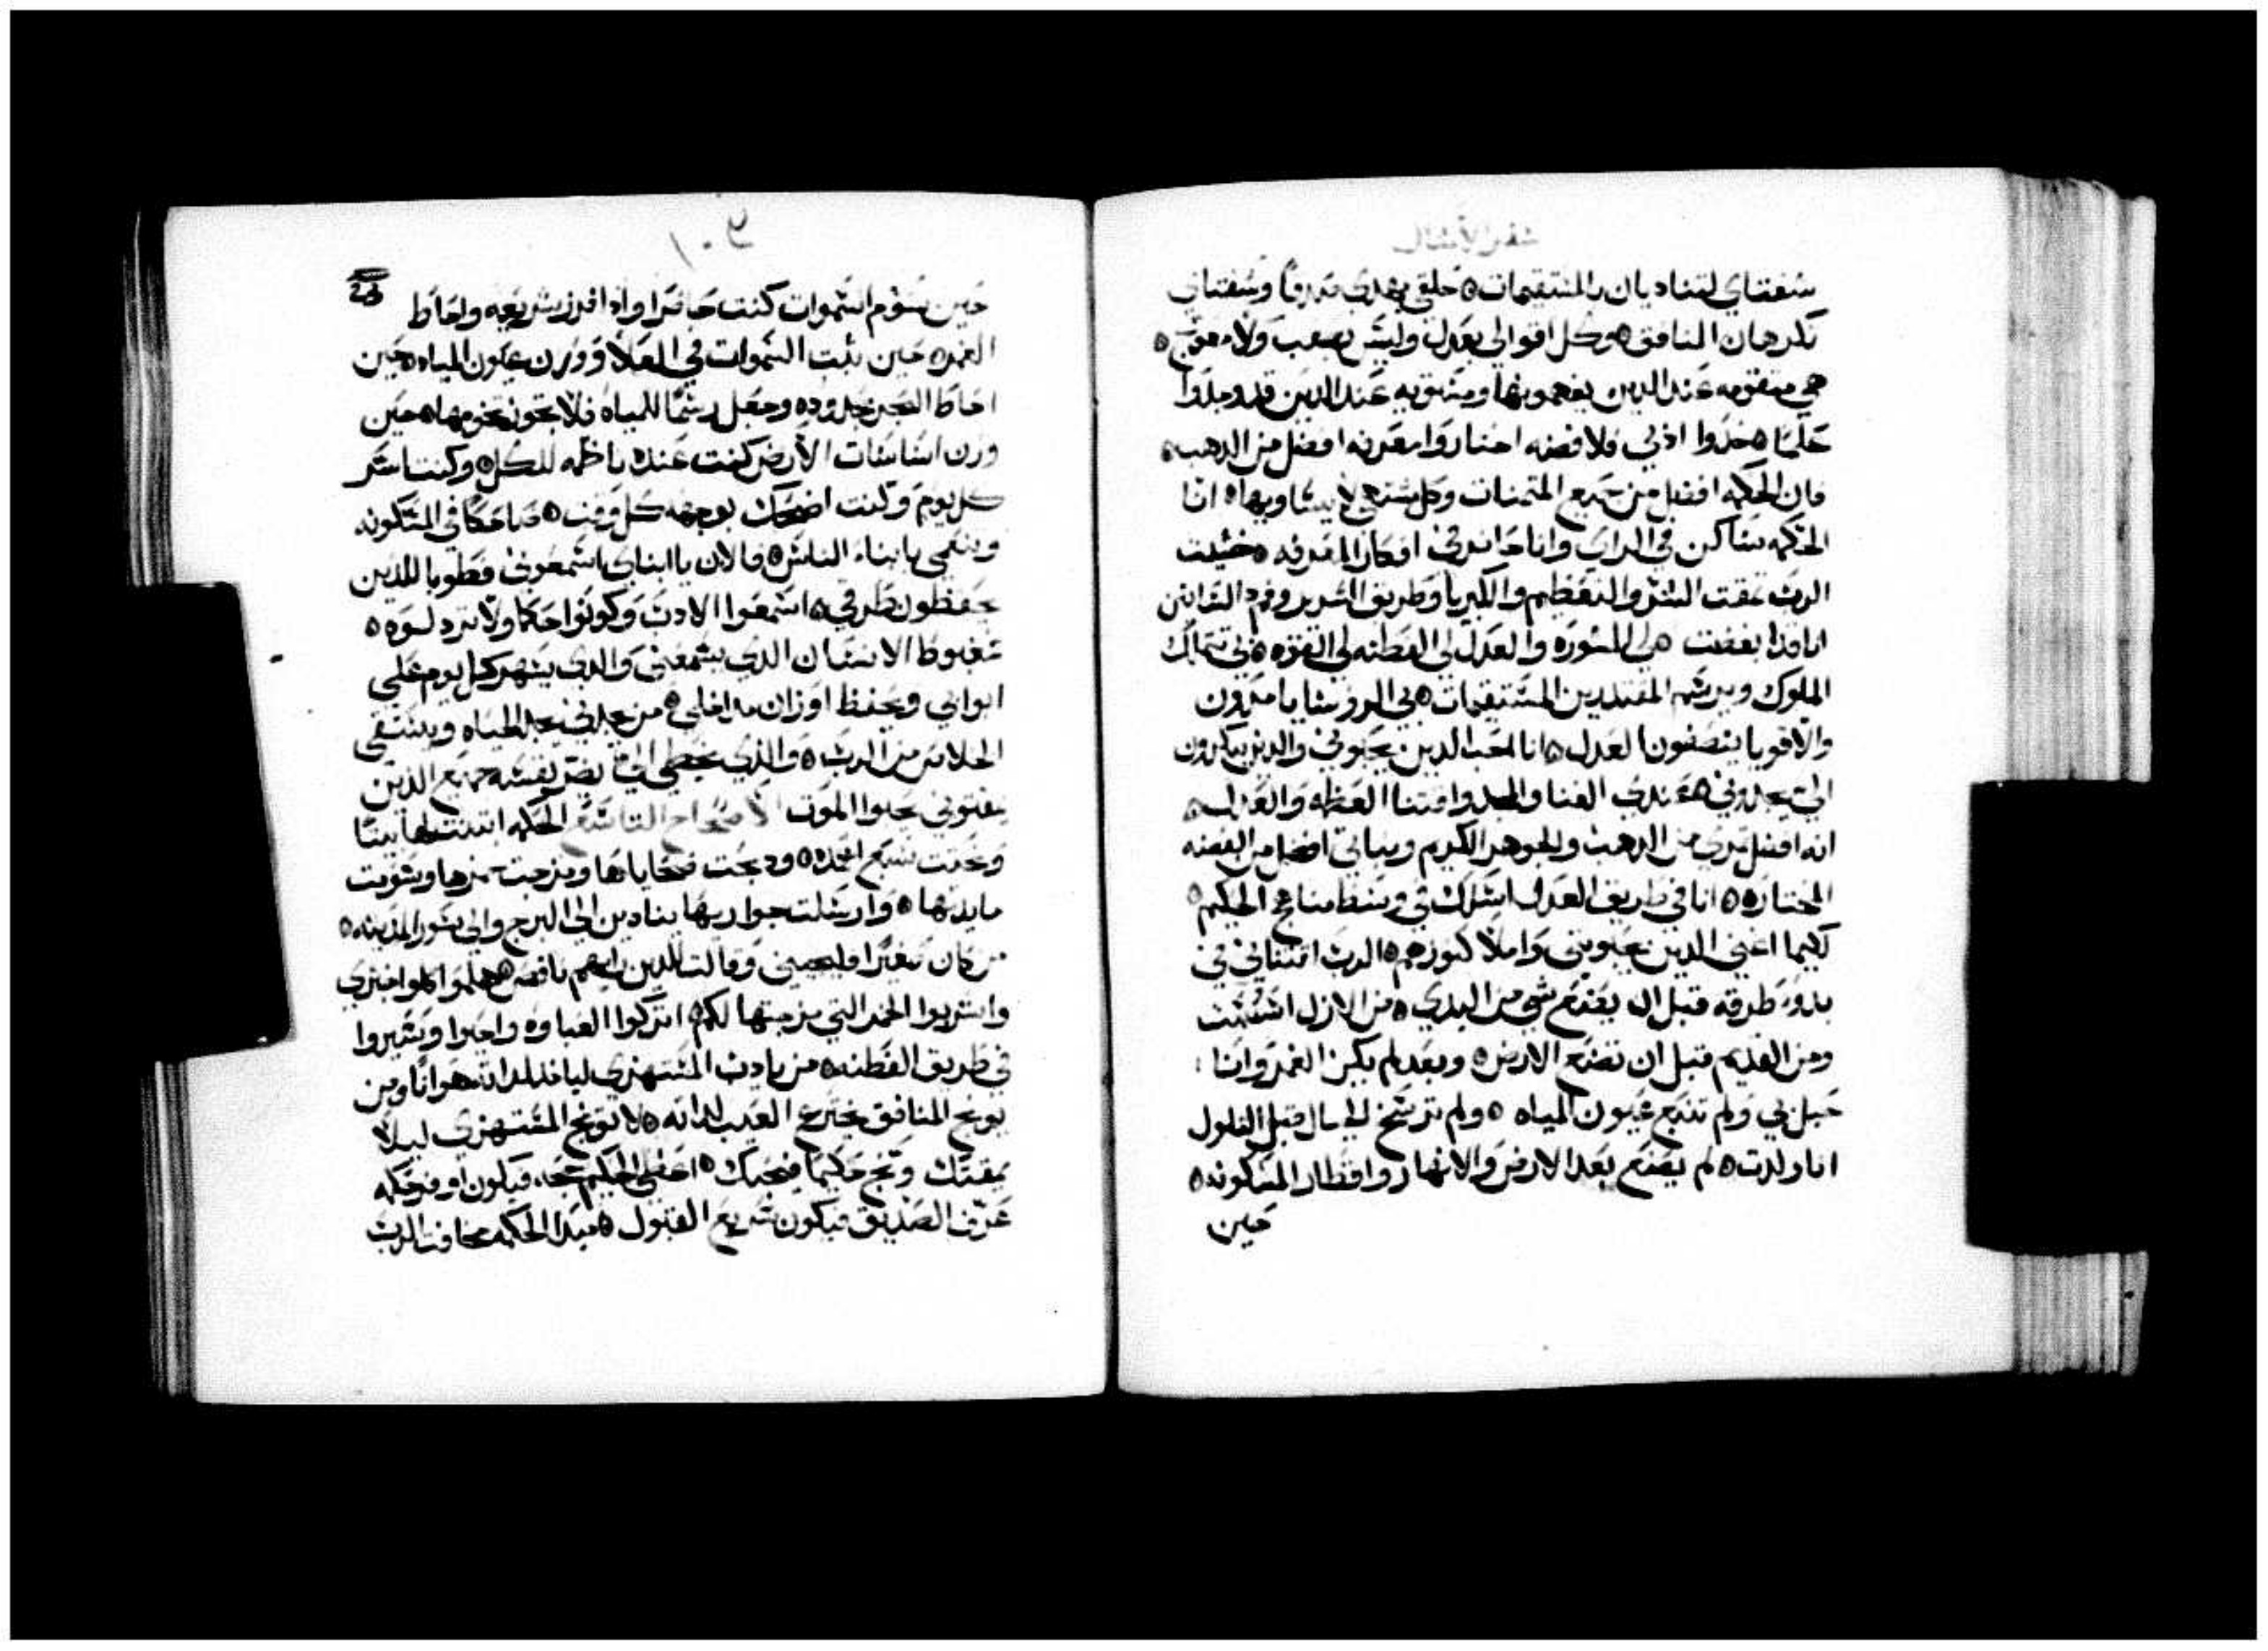 سفر الامثال
شفتاي لتناديان بالمستقيمات ٥ حلقي يهدي صدقا وشفتاي
تكرهان المنافق ٥ وكل اقوالي بعدل وليس بصعب ولا معوج ٥
هي متقومه عند الدين يفهمونها ومستويه عند الدين قد وجدوا
علما ٥ خدوا ادبي فلا فضه اختاروا معرفه افضل من الدهب ٥
فان الحكمه افضل من جميع المتمنات وكل شتهي لا يساويها ٥ انا
الحكمه ساكن في الراي وانا حاضر في افكار المعرفه ٥ خشيت
الرب مقت الشر والتعظيم والكبريا وطريق الشرير وفم د اللسانين
انا قد ابغضت ٥ لي المشوره والعدل لي الفطنه لي القوه ٥ بي تتمالك
الملوك ويرسم المقتدرين المستقيمات ٥ بي الروسا يامرون
والاقويا ينصفون العدل ٥ انا احب الدين يحبوني والدين يبكرون
الي يجدوني ٥ عندي الغنا والمجد واقتنا العظمه والعدل ٥
انه افضل ثمري من الدهب والجوهر الكريم ونباتي افضل من الفضه
المختاره ٥ انا في طريق العدل اسلك في وسط مناهج الحكيم ٥
لكيما اغني الدين يحبوني واملا كنوزهم ٥ الرب اقتناني في
بدو طرقه قبل ان يصنع شي من البدي ٥ من الازل اسست
ومن القديم قبل ان تصنع الارض ٥ وبعد لم يكن الغمر وانا
حبل بي ولم تنبع عيون المياه ٥ ولم ترسخ الجبال قبل التلول
انا ولدت ٥ لم يصنع بعد الارض والانهار واقطار المسكونه ٥
حين
حين يقوم السموات كنت حاضرا واد افرز شريعه واحاط
الغمر ٥ حين ثبت السموات في العلا ووزن عيون المياه ٥ حين
احاط البحر بحدوده وجعل رسما للمياه فلا تجوز تخومها ٥ حين
وزن اساسات الارض كنت عنده ناظمه للكل ٥ وكنت اسر
كل يوم وكنت اضحك بوجهه كل وقت ٥ ضاحكا في المسكونه
ونعمي بابناء الناس ٥ فالان يا ابناي اسمعوني فطوبا للدين
يحفظون طرقي ٥ اسمعوا الادب وكونوا حكما ولا تردلوه ٥
مغبوط الانسان الدي يسمعني والدي يسهر كل يوم على
ابوابي ويحفظ اوزان مداخلي ٥ من يجدني يجد الحياه ويستقي
الخلاص من الرب ٥ والدي يخطي الي يضر نفسه جميع الدين
يمقتوني يحبوا الموت الاصحاح التاسع الحكمه ابتنت لها بيتا
ونحتت سبع اعمده ٥ ودبحت ضحاياها ومزجت خمرها وسويت
مايدتها ٥ وارسلت جواريها ينادين الي البرج والي سور المدينه ٥
من كان صغيرا فليجيني وقالت للدين رايهم ناقص ٥ هلموا كلوا خبزي
واشربوا الخمر التي مزجتها لكم ٥ اتركوا الغباوه واحيوا وسيروا
في طريق الفطنه ٥ من يادب المستهزي ليا خد لداته هوانا ومن
يوبخ المنافق يخترع العيب لداته ٥ لا توبخ المستهزي ليلا
يمقتك وبخ حكيما فيحبك ٥ اعطي الحكيم حجه فيكون اوفر حكمه
عرف الصديق فيكون سريع القبول ٥ مبدا الحكمه مخافت الرب